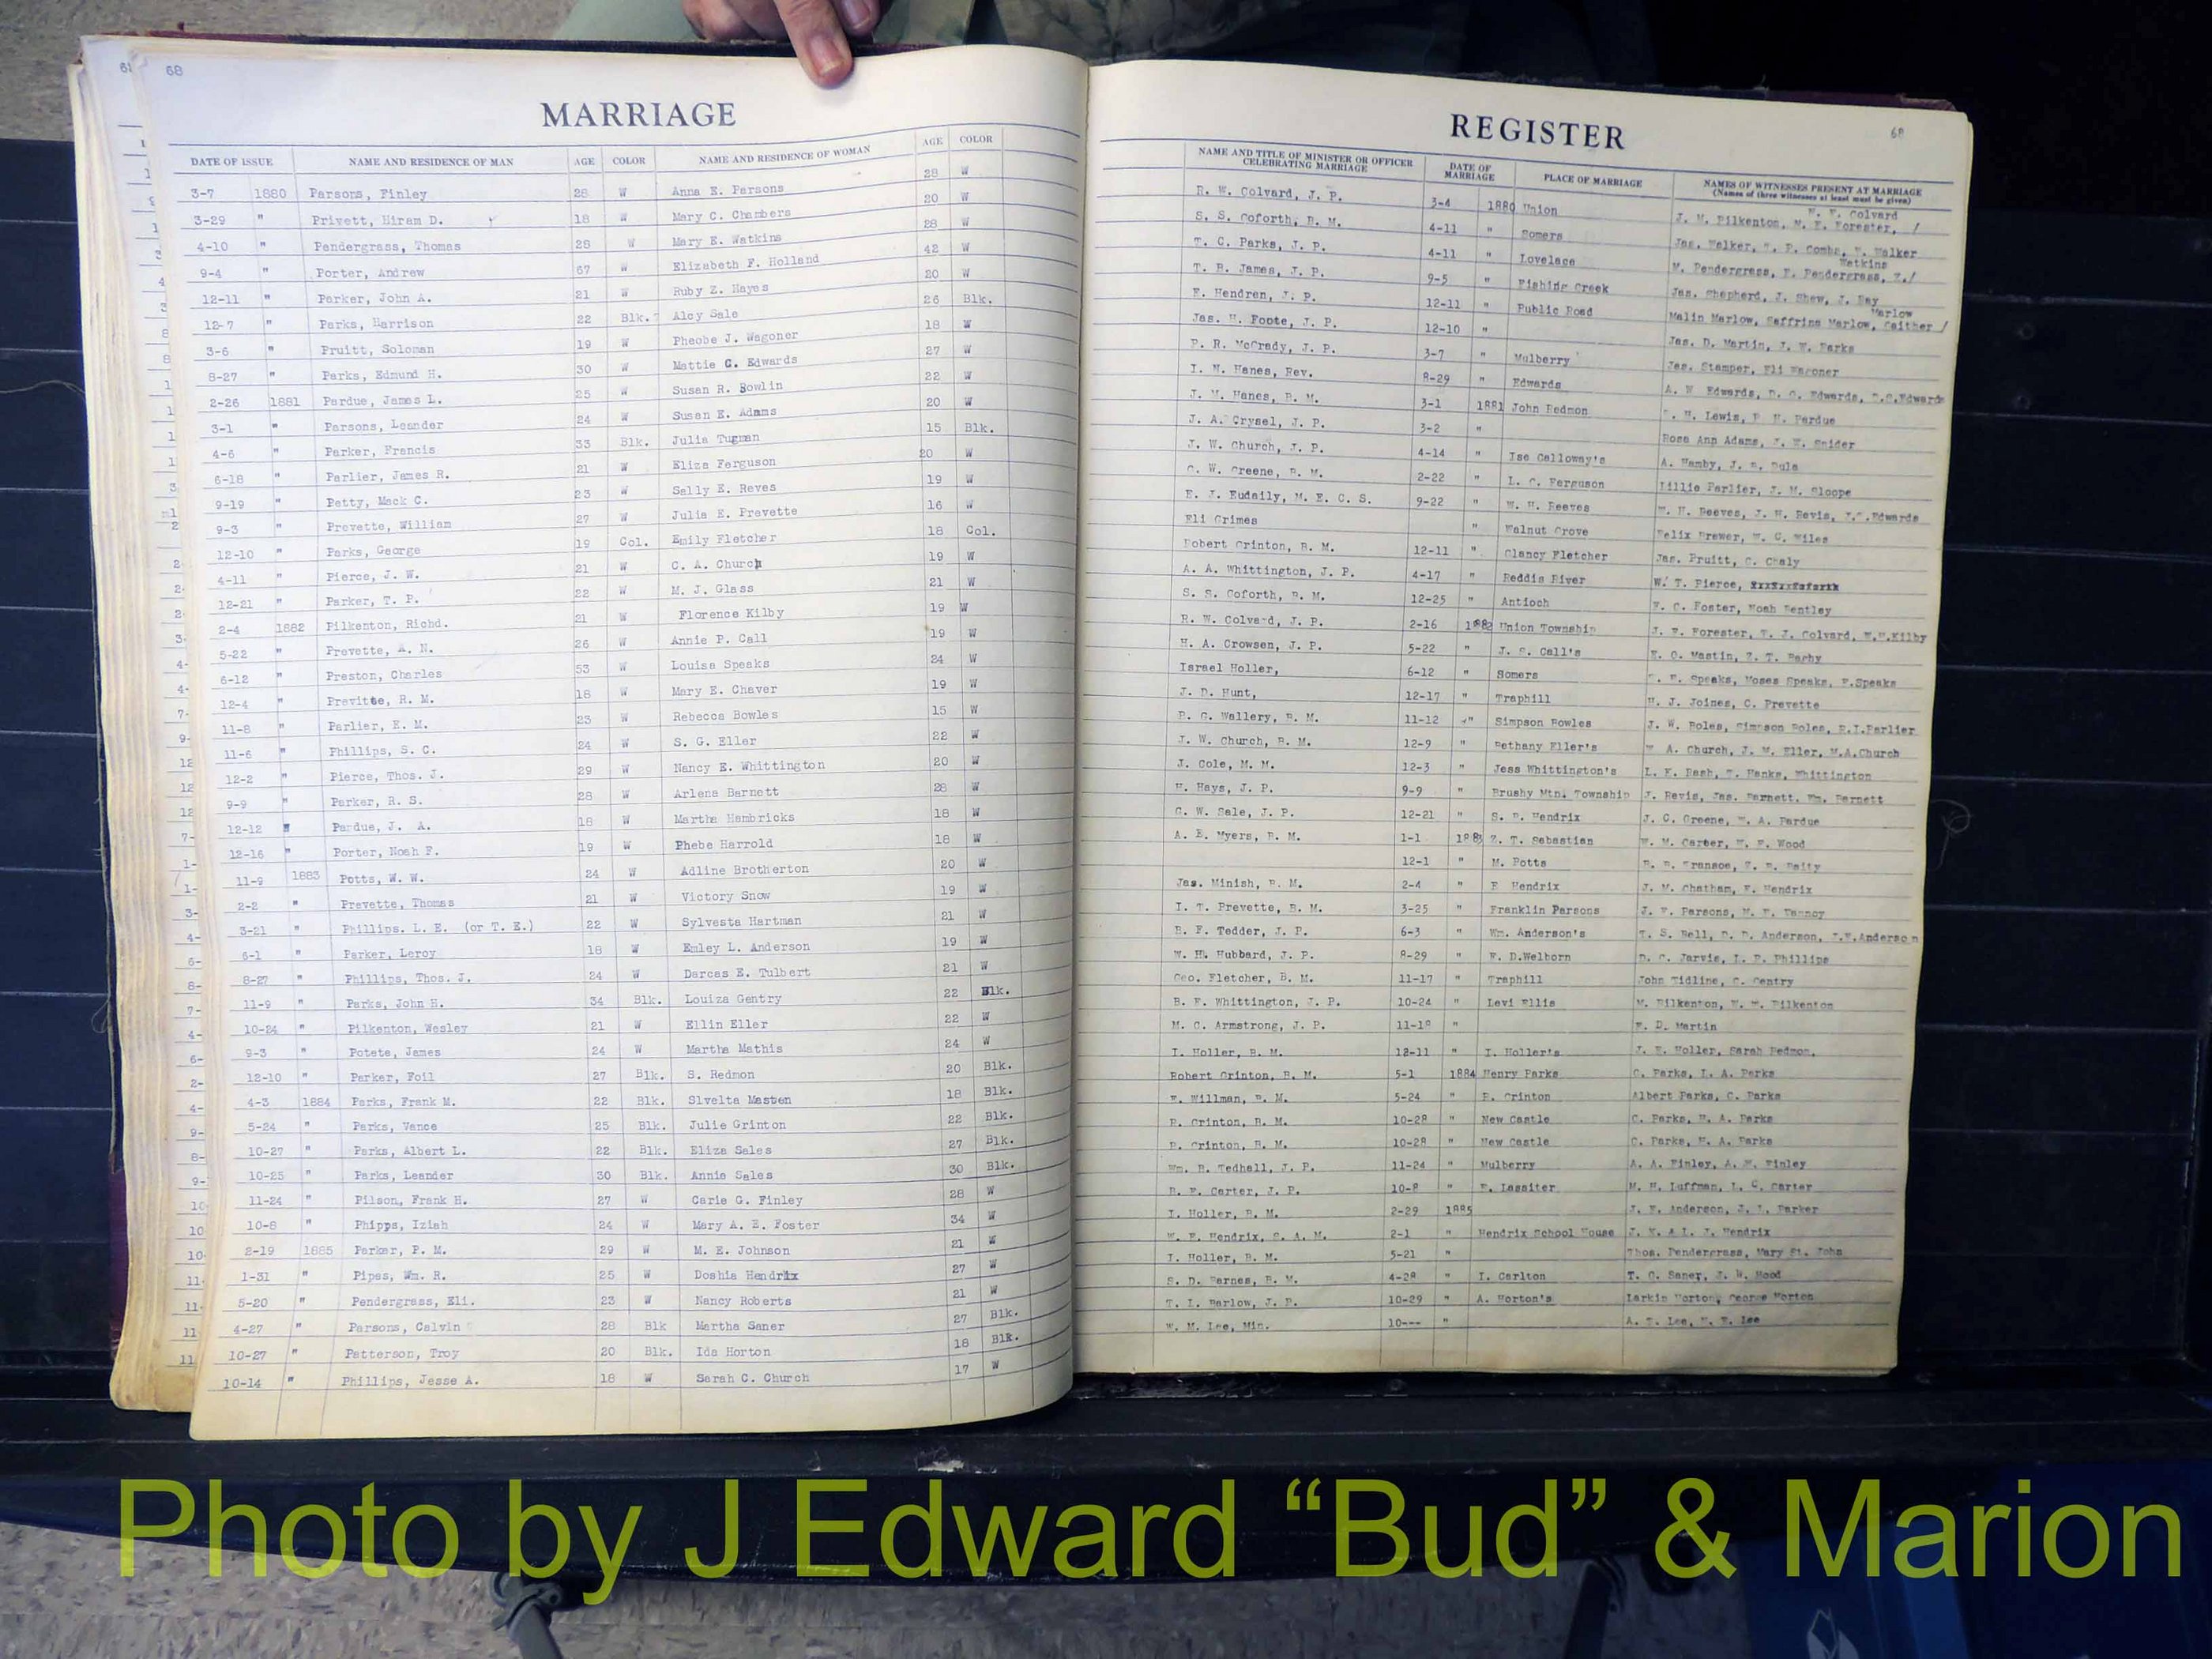 68
MARRIAGE
DATE OF ISSUE NAME AND RESIDENCE OF MAN AGE COLOR NAME AND RESIDENCE OF WOMAN AGE COLOR
3-7 1880 Parsons, Finley 28 W Anna E. Parsons 28 W
3-29 " Privett, Hiram D. 18 W Mary C. Chambers 20 W
4-10 " Pendergrass, Thomas 28 W Mary E. Watkins 28 W
9-4 " Porter, Andrew 67 W Elizabeth F. Holland 42 W
12-11 " Parker, John A. 21 W Ruby Z. Hayes 20 W
12-7 " Parks, Harrison 22 Blk. Alcy Sale 26 Blk.
3-6 " Pruitt, Soloman 19 W Pheobe J. Wagoner 18 W
8-27 " Parks, Edmund H. 30 W Mattie C. Edwards 27 W
2-26 1881 Pardue, James L. 25 W Susan R. Bowlin 22 W
3-1 " Parsons, Leander 24 W Susan E. Adams 20 W
4-6 " Parker, Francis 33 Blk. Julia Tugman 15 Blk.
6-18 " Parlier, James R. 21 W Eliza Ferguson 20 W
9-19 " Petty, Mack C. 23 W Sally E. Reves 19 W
9-3 " Prevette, William 27 W Julia E. Prevette 16 W
12-10 " Parks, George 19 Col. Emily Fletcher 18 Col.
4-11 " Pierce, J. W. 21 W C. A. Church 19 W
12-21 " Parker, T. P. 22 W M. J. Glass 21 W
2-4 1882 Pilkenton, Richd. 21 W Florence Kilby 19 W
5-22 " Prevette, A. N. 26 W Annie P. Call 19 W
6-12 " Preston, Charles 53 W Louisa Speaks 24 W
12-4 " Previtte, R. M. 18 W Mary E. Chaver 19 W
11-8 " Parlier, E. M. 23 W Rebecca Bowles 15 W
11-6 " Phillips, S. C. 24 W S. G. Eller 22 W
12-2 " Pierce, Thos. J. 29 W Nancy E. Whittington 20 W
9-9 " Parker, R. S. 28 W Arlena Barnett 28 W
12-12 " Pardue, J. A. 18 W Martha Hambricks 18 W
12-16 " Porter, Noah F. 19 W Phebe Harrold 18 W
11-9 1883 Potts, W. W. 24 W Adline Brotherton 20 W
2-2 " Prevette, Thomas 21 W Victory Snow 19 W
3-21 " Phillips. L. E. (or T. E.) 22 W Sylvesta Hartman 21 W
6-1 " Parker, Leroy 18 W Emley L. Anderson 19 W
8-27 " Phillips, Thos. J. 24 W Darcas E. Tulbert 21 W
11-9 " Parks, John H. 34 Blk. Louiza Gentry 22 Blk.
10-24 " Pilkenton, Wesley 21 W Ellin Eller 22 W
9-3 " Potete, James 24 W Martha Mathis 24 W
12-10 " Parker, Foil 27 Blk. S. Redmon 20 Blk.
4-3 1884 Parks, Frank M. 22 Blk. Slvelta Masten 18 Blk.
5-24 " Parks, Vance 25 Blk. Julie Grinton 22 Blk.
10-27 " Parks, Albert L. 22 Blk. Eliza Sales 27 Blk.
10-25 " Parks, Leander 30 Blk. Annie Sales 30 Blk.
11-24 " Pilson, Frank H. 27 W Carie G. Finley 28 W
10-8 " Phipps, Iziah 24 W Mary A. E. Foster 34 W
2-19 1885 Parker, P. M. 29 W M. E. Johnson 21 W
1-31 " Pipes, Wm. R. 25 W Doshia Hendrix 27 W
5-20 " Pendergrass, Eli. 23 W Nancy Roberts 21 W
4-27 " Parsons, Calvin 28 Blk Martha Saner 27 Blk.
10-27 " Patterson, Troy 20 Blk. Ida Horton 18 Blk.
10-14 " Phillips, Jesse A. 18 W Sarah C. Church 17 W
REGISTER 68
NAME AND TITLE OF MINISTER OR OFFICER CELEBRATING MARRIAGE DATE OF MARRIAGE PLACE OF MARRIAGE NAMES OF WITNESSES PRESENT AT MARRIAGE
(Names of three witnesses at least must be given)
R. W. Colvard, J. P. 3-4 1880 Union J. M. Pilkenton, M. F. Forester, / Colvard
S. S. Goforth, B. M. 4-11 " Somers Jas. Walker, Combs, Walker
T. C. Parks, J. P. 4-11 " Lovelace M. Pendergrass, F. Pendergrass, Z./ Watkins
T. R. James, J. P. 9-5 " Fishing Creek Jas. Shepherd, J. Shew, J. Hay
E. Hendren, J. P. 12-11 " Public Road Malin Marlow, Saffrina Marlow, Caither / Marlow
Jas. H. Foote, J. P. 12-10 " Jas. D. Martin, J. W. Parks
P. R. McGrady, J. P. 3-7 " Mulberry Jas. Stamper, Eli Wagoner
I. N. Hanes, Rev. 8-29 " Edwards A. W Edwards, D. C. Edwards, Edwards
J. M. Hanes, B. M. 3-1 1881 John Redmon Lewis, Pardue
J. A. Crysel, J. P. 3-2 " Rosa Ann Adams, Snider
J. W. Church, J. P. 4-14 " Ise Calloway's A. Hamby, Dula
G. W. Greene, B. M. 2-22 " L. C. Ferguson Lillie Parlier, J. M. Sloope
E. J. Eudaily, M. E. C. S. 9-22 " W. H. Reeves W. H. Reeves, J. H. Revis, Edwards
Eli Grimes " Walnut Grove Felix Brewer, W. C. Wiles
Robert Grinton, B. M. 12-11 " Clancy Fletcher Jas. Pruitt, C. Chaly
A. A. Whittington, J. P. 4-17 " Reddis River W. T. Pierce,
S. S. Goforth, B. M. 12-25 " Antioch F. C. Foster, Noah Bentley
R. W. Colvard, J. P. 2-16 1882 Union Township J. F. Forester, T. J. Colvard, W.W.Kilby
H. A. Crowsen, J. P. 5-22 " J. S. Call's E. O. Mastin,
Israel Holler, 6-12 " Somers Speaks, Moses Speaks, F.Speaks
J. D. Hunt, 12-17 " Traphill H. J. Joines, C. Prevette
R. G. Wallery, B. M. 11-12 " Simpson Bowles J. W. Boles, Simpson Boles, R.I.Parlier
J. W. Church, B. M. 12-9 " Bethany Eller's A. Church, J. M. Eller, M.A.Church
J. Cole, M. M. 12-3 " Jess Whittington's L. K. Bash, Hanks, Whittington
H. Hays, J. P. 9-9 " Brushy Mtn. Township J. Revis, Jas. Barnett, Wm. Barnett
G. W. Sale, J. P. 12-21 " S. P. Hendrix J. C. Greene, W. A. Pardue
A. E. Myers, B. M. 1-1 1883 Z. T. Sebastian W. M. Carter, W. F. Wood
12-1 " M. Potts
Jas. Minish, B. M. 2-4 " E Hendrix J. M. Chatham, F. Hendrix
I. T. Prevette, B. M. 3-25 " Franklin Parsons J. F. Parsons, Vannoy
R. F. Tedder, J. P. 6-3 " Wm. Anderson's T. S. Bell, Anderson, Anderson
W. H. Hubbard, J. P. 8-29 " F. D.Welborn D. C. Jarvis, L. P. Phillips
Geo. Fletcher, B. M. 11-17 " Traphill John Tidline, C. Gentry
B. F. Whittington, J. P. 10-24 " Levi Ellis W. Pilkenton, Pilkenton
M. C. Armstrong, J. P. 11-18 " F. D. Martin
I. Holler, B. M. 12-11 " I. Holler's J. E. Holler, Sarah Redmon,
Robert Grinton, B. M. 5-1 1884 Henry Parks C. Parks, L. A. Parks
F. Willman, B. M. 5-24 " R. Grinton Albert Parks, C. Parks
R. Grinton, B. M. 10-28 " New Castle C. Parks, H. A. Parks
R. Grinton, B. M. 10-28 " New Castle C. Parks, H. A. Parks
Wm. R. Tedhell, J. P. 11-24 " Mulberry A. A. Finley, A. W. Finley
R. F. Carter, J. P. 10-8 " E. Lassiter M. H. Luffman, L. C. Carter
I. Holler, B. M. 2-29 1885 J. F. Anderson, J. L. Parker
W. E. Hendrix, S. A. M. 2-1 " Hendrix School House J. & L. J. Hendrix
I. Holler, B. M. 5-21 " Thos. Pendergrass, Mary St. John
S. D. Barnes, B. M. 4-28 " I. Carlton T. C. Saner, J. W. Hood
T. L. Barlow, J. P. 10-29 " A. Horton's Larkin Horton, George Horton
W. M. Lee, Min. 10--- " A. T. Lee, Lee
Photo by J Edward “Bud” & Marion